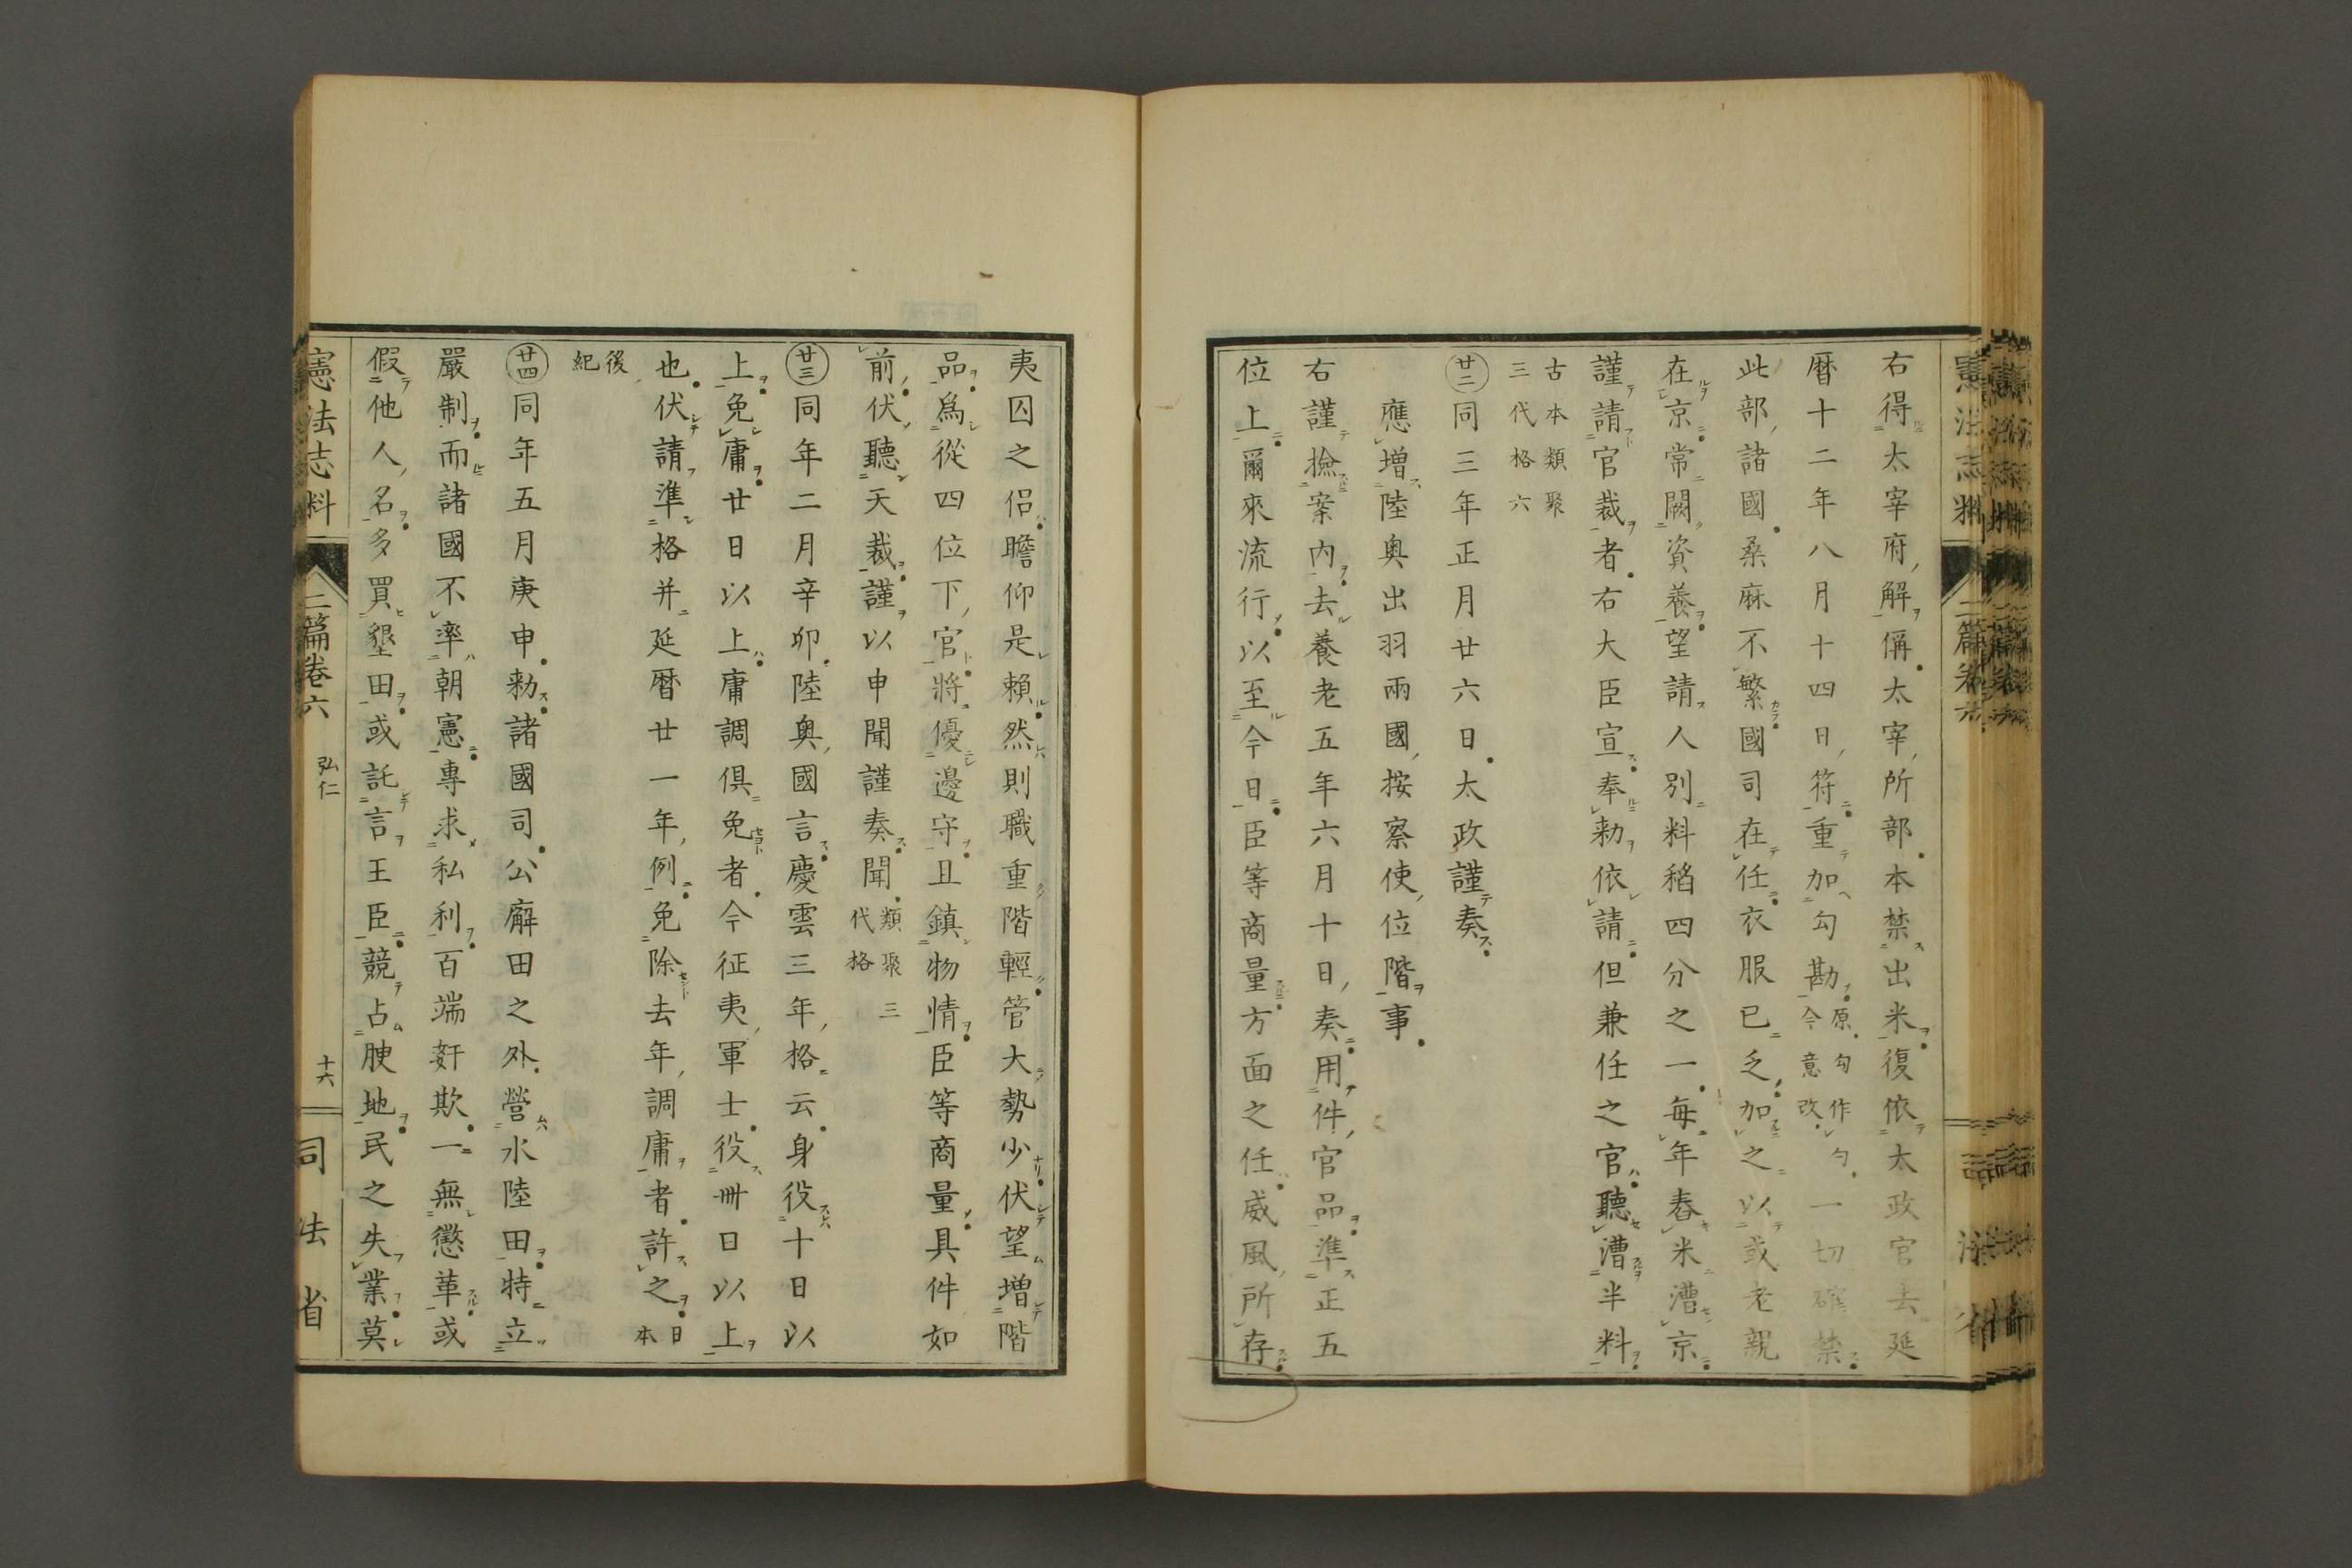 右得太宰府解偁太宰所部本禁出米復依太政官去延
暦十二年八月十四日符重加勾勘原勾作勻今意改一切禁
此部諸國桑麻不繁國司在任衣服已乏加之以或老親
在京常闕資養望請人別料稻四分之一每年舂米漕京
謹請官裁者右大臣宣奉勅依請但兼任之官聽漕半料
古本類聚三代格六
廿二同三年正月廿六日太政謹奏
應增陸奥出羽兩國按察使位階事
右謹撿案內去養老五年六月十日奏用件官品準正五
位上爾來流行以至今日臣等商量方面之任威風所存
夷囚之侶瞻仰是賴然則職重階輕管大勢少伏望增階
品爲從四位下官將優邊守且鎮物情臣等商量具件如
前伏聽天裁謹以申聞謹奏聞類聚三代格
廿三同年二月辛卯陸奥國言慶雲三年格云身役十日以
上免庸廿日以上庸調俱免者今征夷軍士役卌日以上
也伏請準格并延暦廿一年例免除去年調庸者許之日本
後紀
廿四同年五月庚申勅諸國司公廨田之外營水陸田特立
嚴制而諸國不率朝憲專求私利百端奸欺一無懲革或
假他人名多買墾田或託言王臣競占腴地民之失業莫
憲法志料 二篇卷六 弘仁 十六 司法省